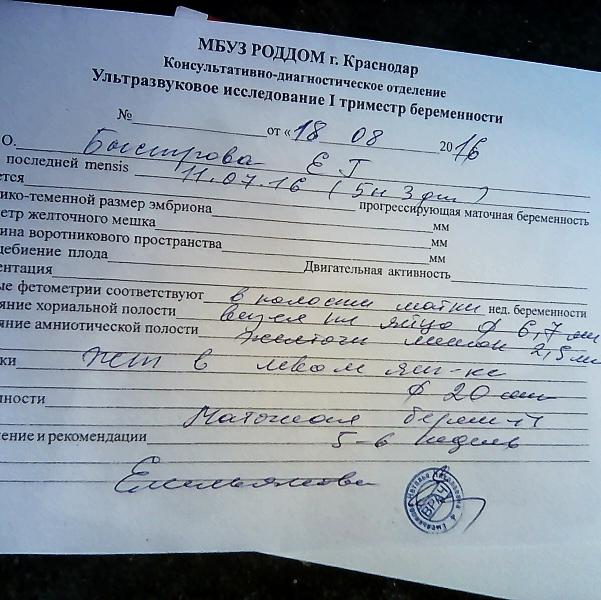 МБУЗ РОДДОМ г. Краснодар
Консультативно-диагностическое отделение
Ультразвуковое исследование I триместр беременности
№ от «18 08 2016
О. Быстрова Е Г
последней mensis 11.07.16 (5н 3 дн)
ется прогрессирующая маточная беременность
ико-теменной размер эмбриона мм
етр желточного мешка мм
ина воротникового пространства мм
цебиение плода Двигательная активность
ентация
ые фетометрии соответствуют в полости матки нед. беременности
яние хориальной полости яйцо ф 6,7 мм
яние амниотической полости желточн мешок 2,5 мм
ки жт в левом яич-ке
ф 20 мм
нности
Маточная берем-ть
ение и рекомендации 5-6 недель
Емельянова
ВРАЧ